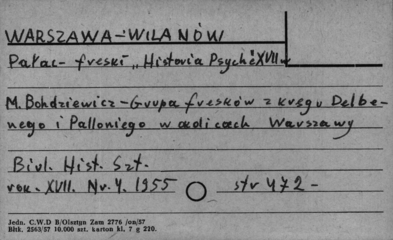 WARSZAWA-WILANÓW
Pałac - freski „Historia Psyche" XVII w
M. Bohdziewicz - Grupa fresków z kręgu Delbe-
nego i Palloniego w okolicach Warszawy
Biul. Hist. Szt.
rok. XVII. Nr. 4. 1955 str 472 -
Jedn. C.W.D B/Olsztyn Zam 2776 /on/57
Bltk. 2563/57 10.000 szt. karton kl. 7 g 220.